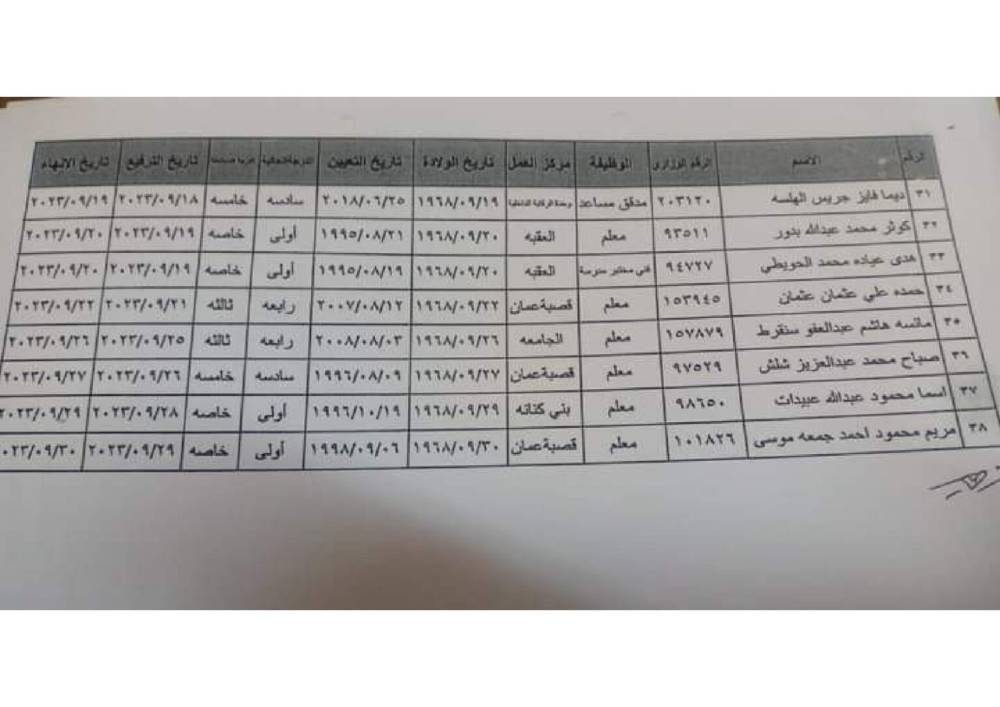 الرقم الاسم الرقم الوزاري الوظيفة مركز العمل تاريخ الولادة تاريخ التعيين الدرجة الحالية تاريخ الترفيع تاريخ الانهاء
٣١ ديما فايز جريس الهلسه ٢٠٣١٢٠ مدقق مساعد وحدة الرقابة الداخلية ١٩٦٨/٠٩/١٩ ٢٠١٨/٠٦/٢٥ سادسه خامسه ٢٠٢٣/٠٩/١٨ ٢٠٢٣/٠٩/١٩
٣٢ كوثر محمد عبدالله بدور ٩٣٥١١ معلم العقبه ١٩٦٨/٠٩/٢٠ ١٩٩٥/٠٨/٢١ أولى خاصه ٢٠٢٣/٠٩/١٩ ٢٠٢٣/٠٩/٢٠
٣٣ هدى عياده محمد الحويطي ٩٤٧٢٧ فني مختبر مدرسة العقبه ١٩٦٨/٠٩/٢٠ ١٩٩٥/٠٨/١٩ أولى خاصه ٢٠٢٣/٠٩/١٩ ٢٠٢٣/٠٩/٢٠
٣٤ حمده علي عثمان عثمان ١٥٣٩٤٥ معلم قصبة عمان ١٩٦٨/٠٩/٢٢ ٢٠٠٧/٠٨/١٢ رابعه ثالثه ٢٠٢٣/٠٩/٢١ ٢٠٢٣/٠٩/٢٢
٣٥ مائسه هاشم عبدالعفو سنقرط ١٥٧٨٧٩ معلم الجامعه ١٩٦٨/٠٩/٢٦ ٢٠٠٨/٠٨/٠٣ رابعه ثالثه ٢٠٢٣/٠٩/٢٥ ٢٠٢٣/٠٩/٢٦
٣٦ صباح محمد عبدالعزيز شلش ٩٧٥٢٩ معلم قصبة عمان ١٩٦٨/٠٩/٢٧ ١٩٩٦/٠٨/٠٩ سادسه خامسه ٢٠٢٣/٠٩/٢٦ ٢٠٢٣/٠٩/٢٧
٣٧ اسما محمود عبدالله عبيدات ٩٨٦٥٠ معلم بني كنانه ١٩٦٨/٠٩/٢٩ ١٩٩٦/١٠/١٩ أولى خاصه ٢٠٢٣/٠٩/٢٨ ٢٠٢٣/٠٩/٢٩
٣٨ مريم محمود احمد جمعه موسى ١٠١٨٢٦ معلم قصبة عمان ١٩٦٨/٠٩/٣٠ ١٩٩٨/٠٩/٠٦ أولى خاصه ٢٠٢٣/٠٩/٢٩ ٠٢٣/٠٩/٣٠